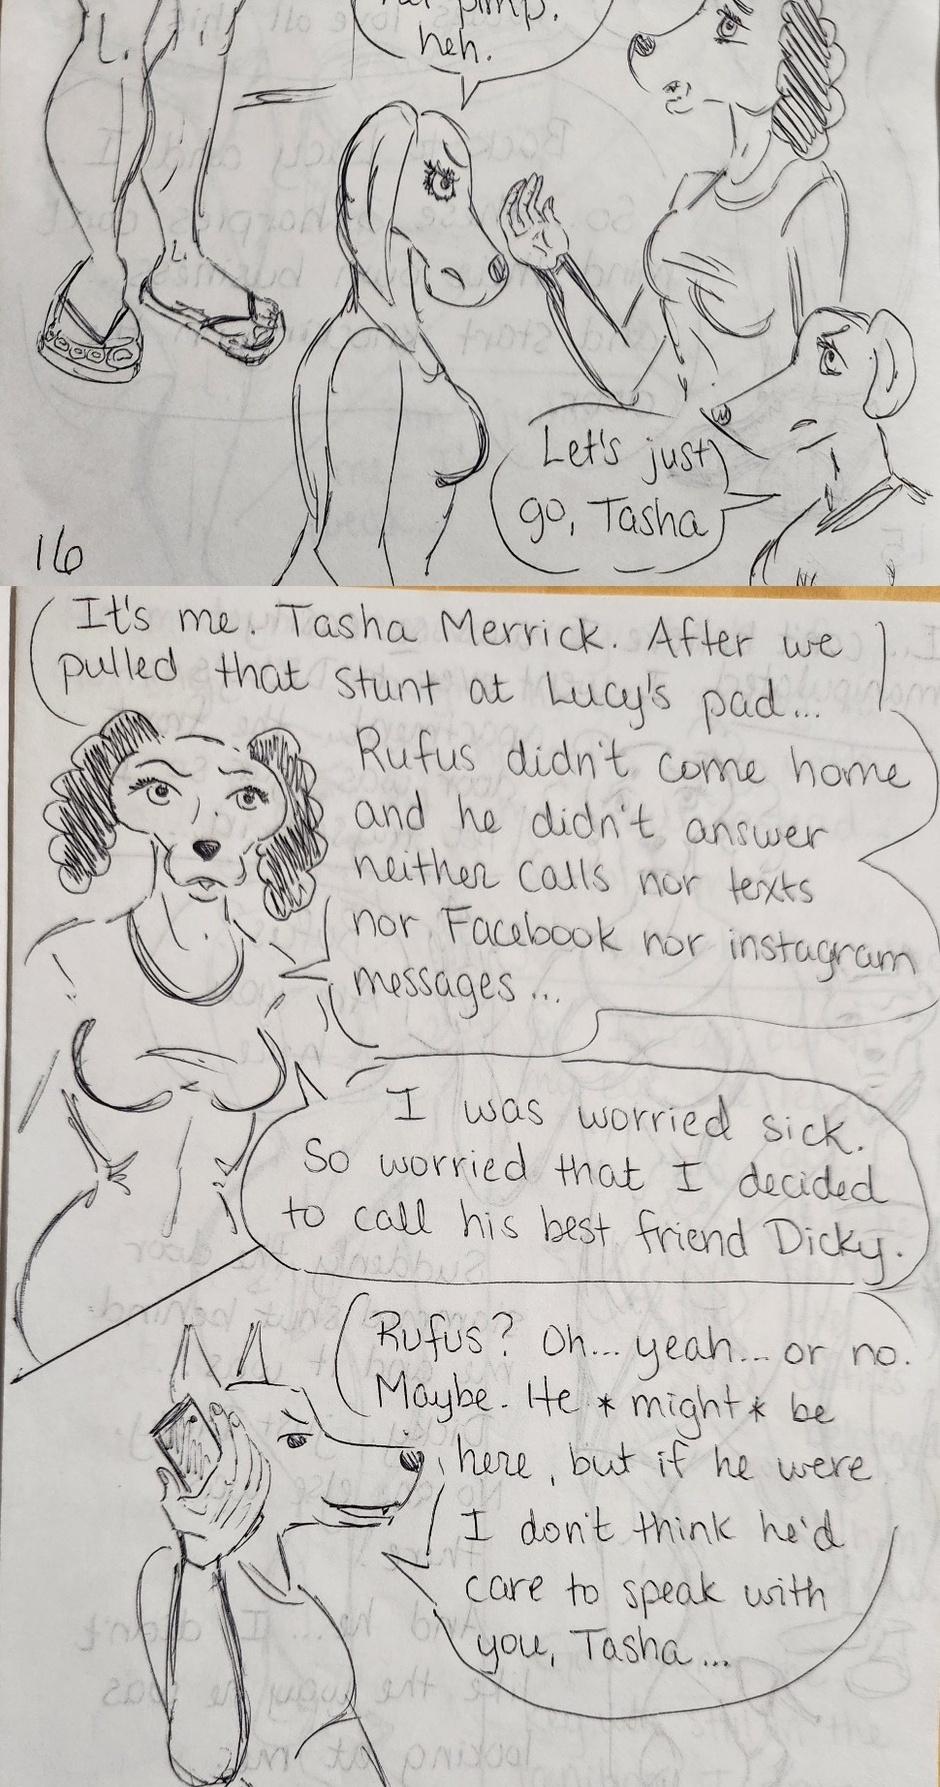 her pimp.
heh.
Let's just
go, Tasha
16
It's me. Tasha Merrick. After we
pulled that stunt at Lucy's pad...
Rufus didn't come home
and he didn't answer
neither calls nor texts
nor Facebook nor instagram
messages...
I was worried sick.
So worried that I decided
to call his best friend Dicky.
Rufus? Oh... yeah... or no.
Maybe. He *might* be
here, but if he were
I don't think he'd
care to speak with
you, Tasha...